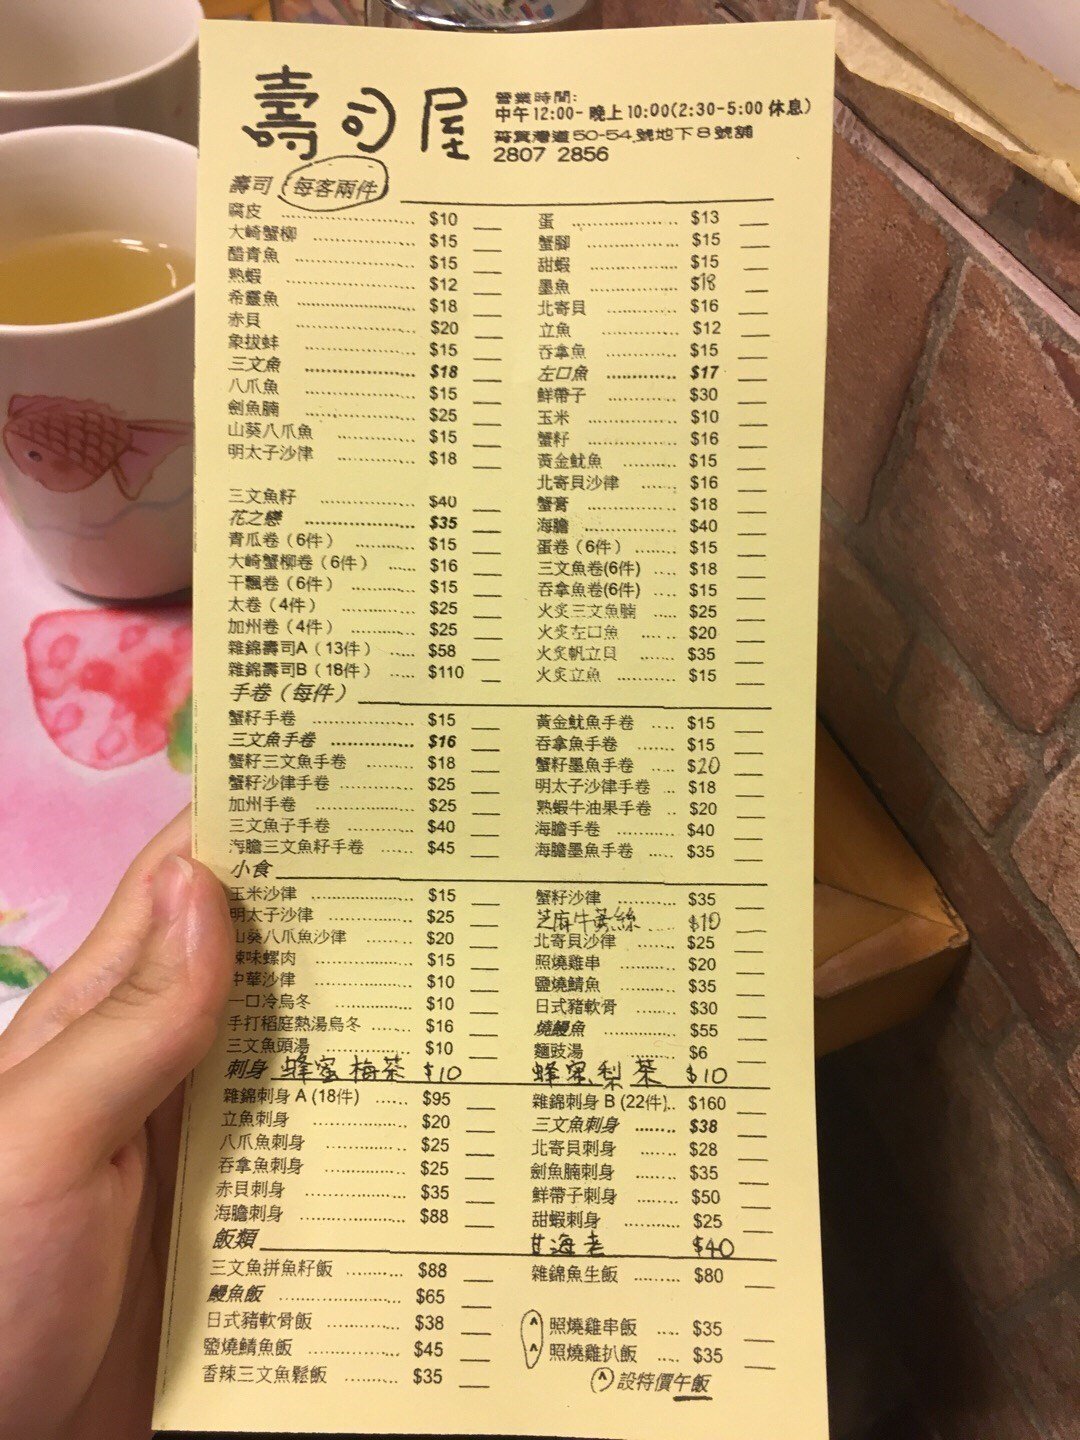 壽司屋
營業時間:
中午12:00- 晚上10:00(2:30-5:00 休息)
筲箕灣道50-54號地下8號舖
2807 2856
壽司 每客兩件
腐皮 $10 蛋 $13
大崎蟹柳 $15 蟹腳 $15
醋青魚 $15 甜蝦 $15
熟蝦 $12 墨魚 $18
希靈魚 $18 北寄貝 $16
赤貝 $20 立魚 $12
象拔蚌 $15 吞拿魚 $15
三文魚 $18 左口魚 $17
八爪魚 $15 鮮帶子 $30
劍魚腩 $25 玉米 $10
山葵八爪魚 $15 蟹籽 $16
明太子沙律 $18 黃金魷魚 $15
北寄貝沙律 $16
三文魚籽 $40 蟹膏 $18
花之戀 $35 海膽 $40
青瓜卷（6件） $15 蛋卷（6件） $15
大崎蟹柳卷（6件） $16 三文魚卷(6件) $18
干瓢卷（6件） $15 吞拿魚卷(6件) $15
太卷（4件） $25 火炙三文魚腩 $25
加州卷（4件） $25 火炙左口魚 $20
雜錦壽司A（13件） $58 火炙帆立貝 $35
雜錦壽司B（18件） $110 火炙立魚 $15
手卷（每件）
蟹籽手卷 $15 黃金魷魚手卷 $15
三文魚手卷 $16 吞拿魚手卷 $15
蟹籽三文魚手卷 $18 蟹籽墨魚手卷 $20
蟹籽沙律手卷 $25 明太子沙律手卷 $18
加州手卷 $25 熟蝦牛油果手卷 $20
三文魚子手卷 $40 海膽手卷 $40
海膽三文魚籽手卷 $45 海膽墨魚手卷 $35
小食
玉米沙律 $15 蟹籽沙律 $35
明太子沙律 $25 芝麻牛蒡絲 $10
山葵八爪魚沙律 $20 北寄貝沙律 $25
辣味螺肉 $15 照燒雞串 $20
中華沙律 $10 鹽燒鯖魚 $35
一口冷烏冬 $10 日式豬軟骨 $30
手打稻庭熱湯烏冬 $16 燒鰻魚 $55
三文魚頭湯 $10 麵豉湯 $6
刺身 蜂蜜梅茶 $10 蜂蜜梨茶 $10
雜錦刺身 A (18件) $95 雜錦刺身 B (22件) $160
立魚刺身 $20 三文魚刺身 $38
八爪魚刺身 $25 北寄貝刺身 $28
吞拿魚刺身 $25 劍魚腩刺身 $35
赤貝刺身 $35 鮮帶子刺身 $50
海膽刺身 $88 甜蝦刺身 $25
飯類 甘海老 $40
三文魚拼魚籽飯 $88 雜錦魚生飯 $80
鰻魚飯 $65
日式豬軟骨飯 $38 ^ 照燒雞串飯 $35
鹽燒鯖魚飯 $45 ^ 照燒雞扒飯 $35
香辣三文魚鬆飯 $35 ^ 設特價午飯